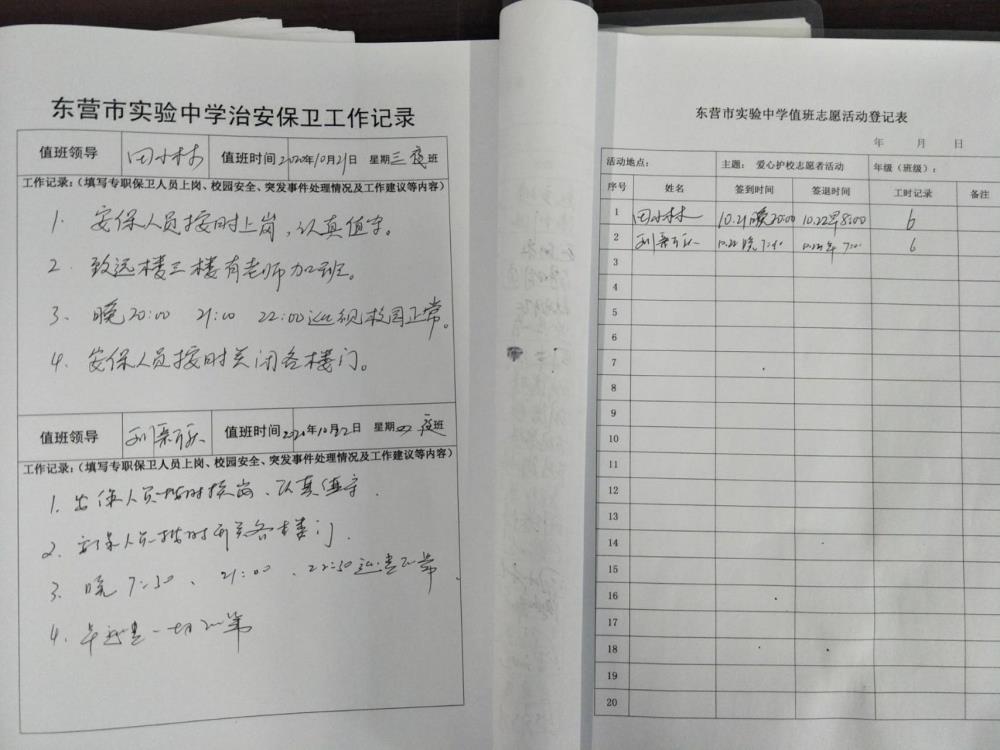 东营市实验中学治安保卫工作记录
值班领导 田小林 值班时间 2020年10月21日 星期三 夜班
工作记录:(填写专职保卫人员上岗、校园安全、突发事件处理情况及工作建议等内容)
1. 安保人员按时上岗,认真值守。
2. 致远楼三楼有老师加班。
3. 晚20:00 21:00 22:00巡视校园正常。
4. 安保人员按时关闭各楼门。
值班领导 值班时间 2020年10月 日 星期四 夜班
工作记录:(填写专职保卫人员上岗、校园安全、突发事件处理情况及工作建议等内容)
1. 安保人员按时接岗、认真值守.
2. 安保人员按时开关各楼门.
3. 晚 7:30、21:00、22:30巡查正常.
4. 早巡查一切正常
东营市实验中学值班志愿活动登记表
年 月 日
活动地点: 主题: 爱心护校志愿者活动 年级(班级):
序号 姓名 签到时间 签退时间 工时记录 备注
1 田小林 10.21晚20:00 10.22早8:00 6
2 10.22 晚 6
3
4
5
6
7
8
9
10
11
12
13
14
15
16
17
18
19
20